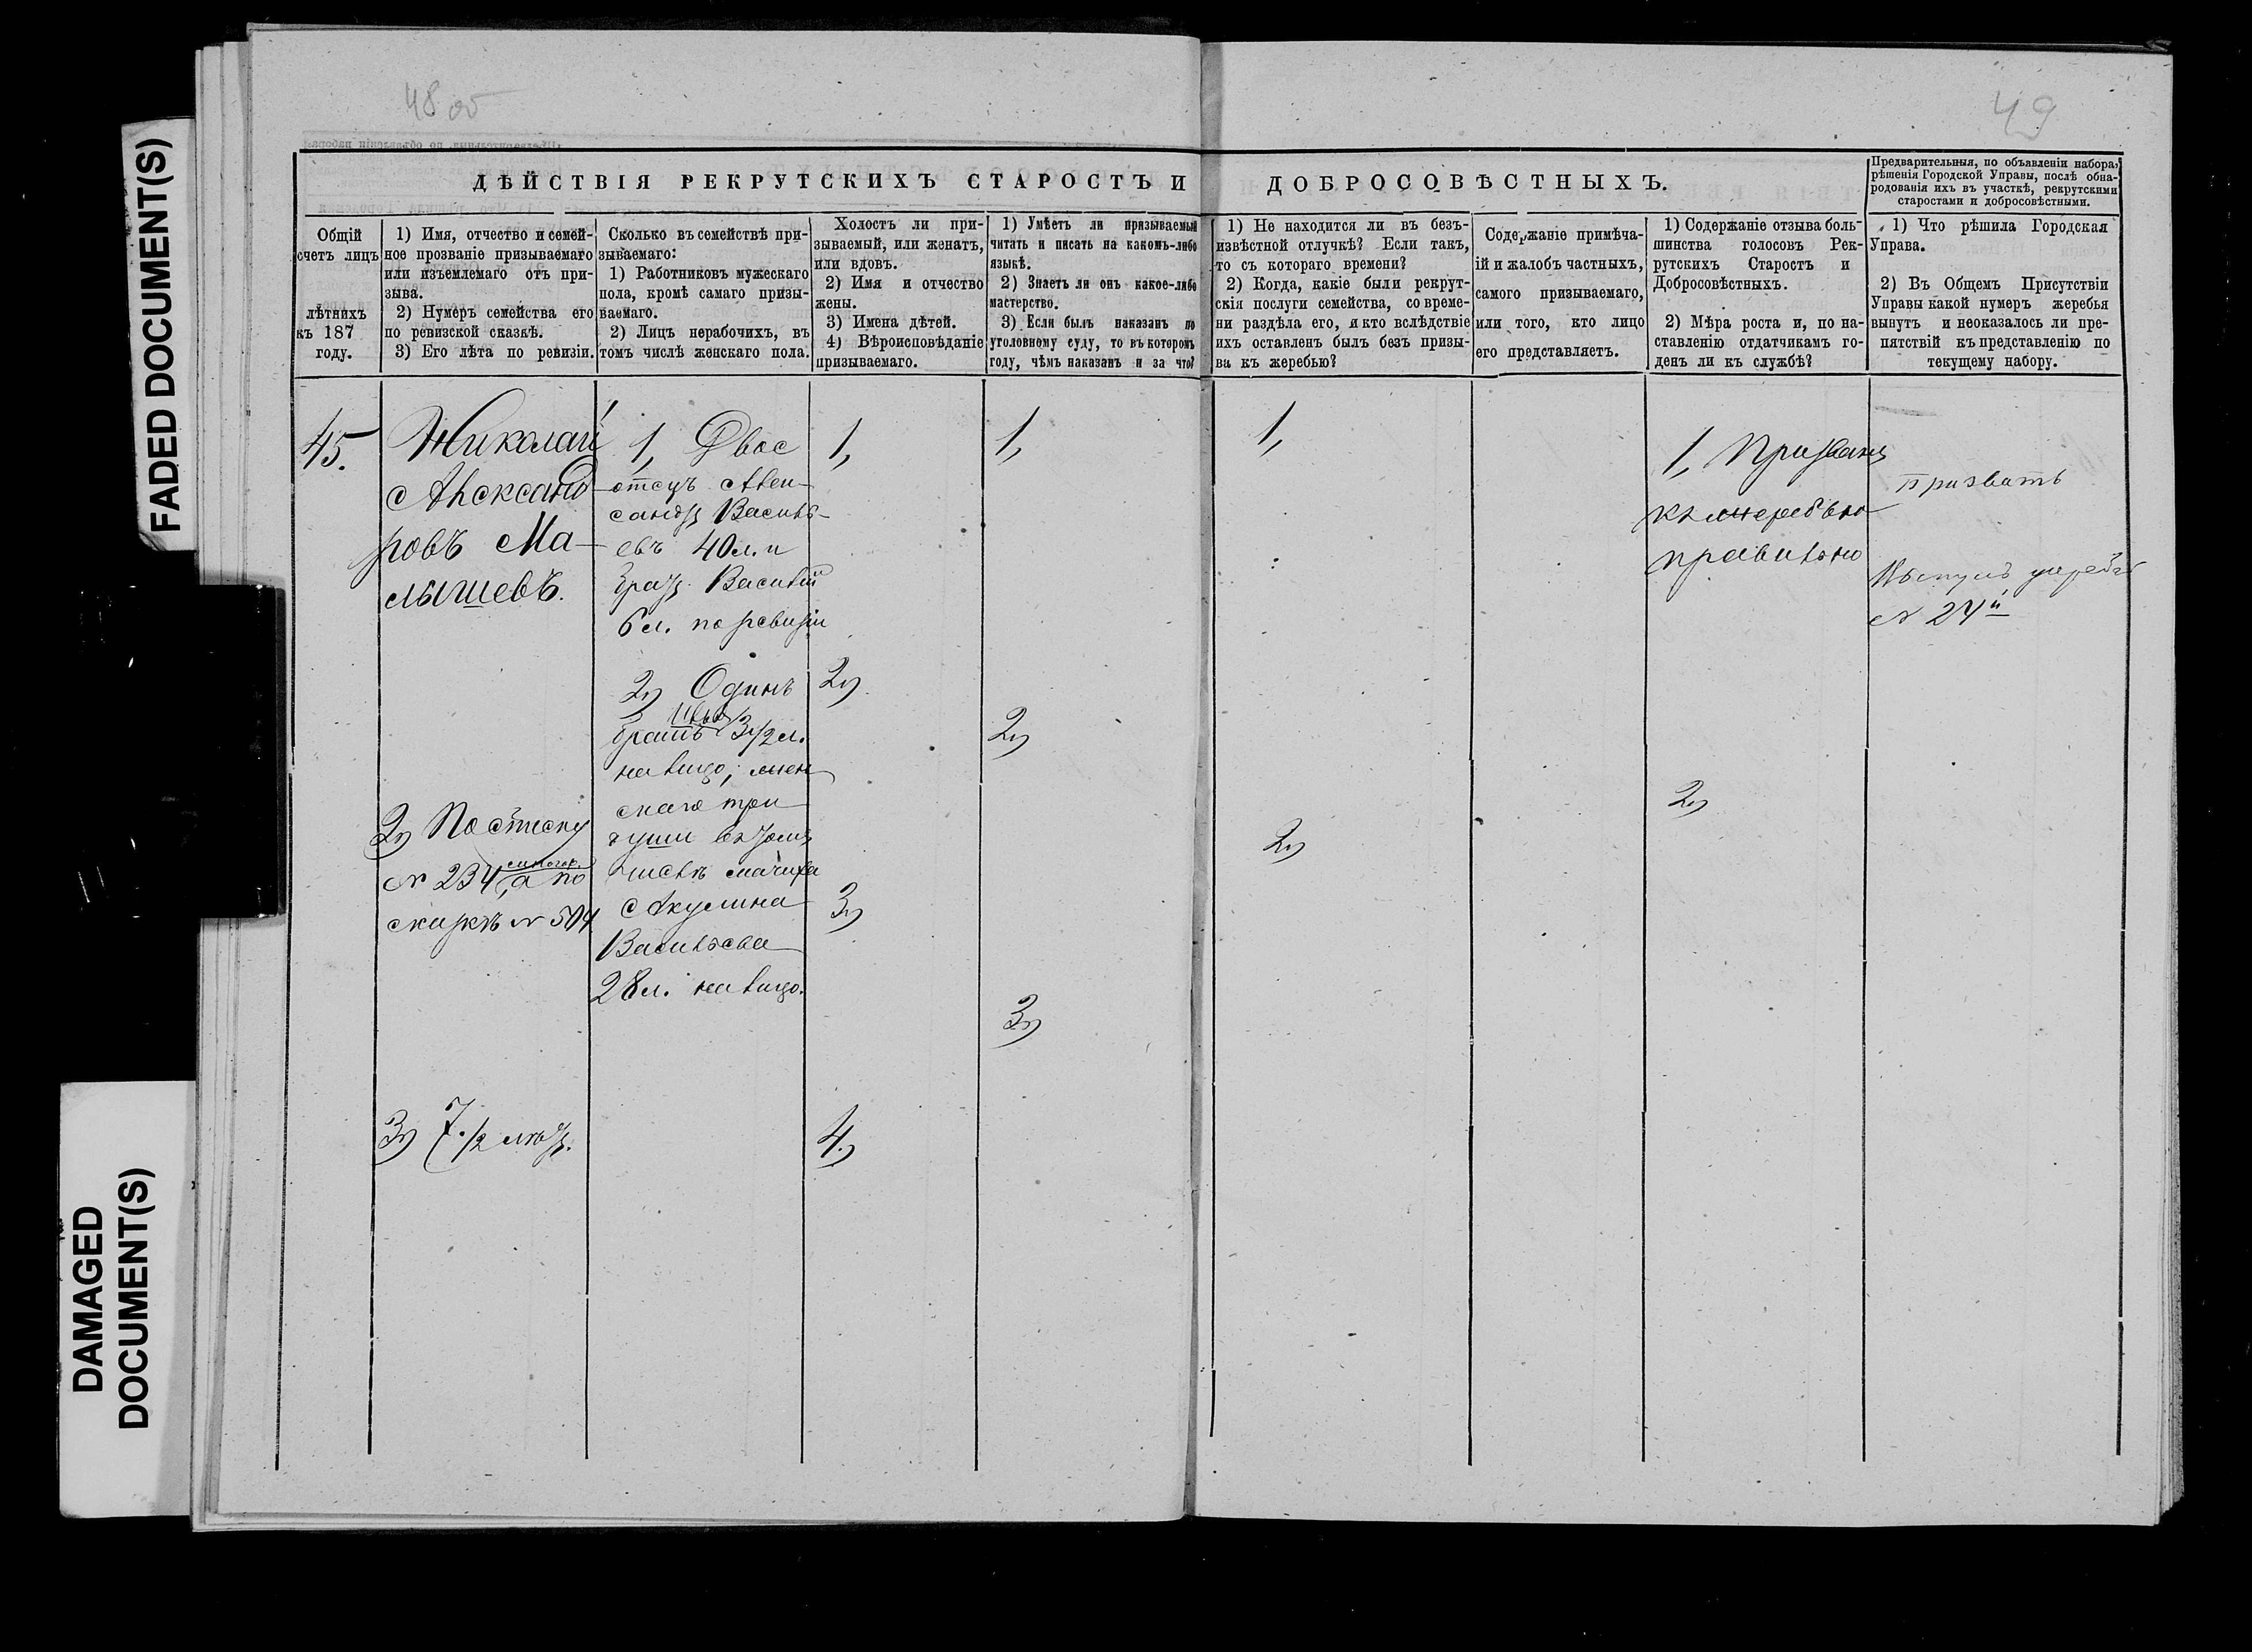 FADED DOCUMENT(S)
DAMAGED
DOCUMENT(S)
48 об
49
ДѢЙСТВІЯ РЕКРУТСКИХЪ СТАРОСТЪ И ДОБРОСОВѢСТНЫХЪ.
Предварительныя, по объявленіи набора,
рѣшенія Городской Управы, послѣ обна-
родованія ихъ въ участкѣ, рекрутскими
старостами и добросовѣстными.
Общій
счетъ лицъ
лѣтнихъ
къ 187
году.
1) Имя, отчество и семей-
ное прозваніе призываемаго
или изъемлемаго отъ при-
зыва.
2) Нумеръ семейства его
по ревизской сказкѣ.
3) Его лѣта по ревизіи.
Сколько въ семействѣ при-
зываемаго:
1) Работниковъ мужескаго
пола, кромѣ самаго призы-
ваемаго.
2) Лицъ нерабочихъ, въ
томъ числѣ женскаго пола.
Холостъ ли при-
зываемый, или женатъ,
или вдовъ.
2) Имя и отчество
жены.
3) Имена дѣтей.
4) Вѣроисповѣданіе
призываемаго.
1) Умѣетъ ли призываемый
читать и писать на какомъ-либо
языкѣ.
2) Знаетъ ли онъ какое-либо
мастерство.
3) Если былъ наказанъ по
уголовному суду, то въ которомъ
году, чѣмъ наказанъ и за что?
1) Не находится ли въ безъ-
извѣстной отлучкѣ? Если такъ,
то съ котораго времени?
2) Когда, какіе были рекрут-
скія послуги семейства, со време-
ни раздѣла его, и кто вслѣдствіе
ихъ оставленъ былъ безъ призы-
ва къ жеребью?
Содержаніе примѣча-
ій и жалобъ частныхъ,
самого призываемаго,
или того, кто лицо
его представляетъ.
1) Содержаніе отзыва боль-
шинства голосовъ Рек-
рутскихъ Старостъ и
Добросовѣстныхъ.
2) Мѣра роста и, по на-
ставленію отдатчикамъ го-
денъ ли къ службѣ?
1) Что рѣшила Городская
Управа.
2) Въ Общемъ Присутствіи
Управы какой нумеръ жеребья
вынутъ и неоказалось ли пре-
пятствій къ представленію по
текущему набору.
45.
Николай
Александ-
ровъ Ма-
лышевъ.
2) По списку
№ 234, а по
сказкѣ № 504
3) 7 1/2 лѣтъ.
1, Двое
отецъ Алек-
сандръ Василь-
евъ 40 л. и
братъ Василій
6 л. по ревизіи
2) Одинъ
братъ 3 1/2 л.
на лицо; жен-
скаго три
души въ томъ
числѣ мачиха
Акулина
Васильева
28 л. на лицо.
1,
2)
3)
4)
1,
2)
3)
1,
2)
1, Призванъ
къ жеребью
правильно
2)
призвать
Вынулъ жребій
№ 24й